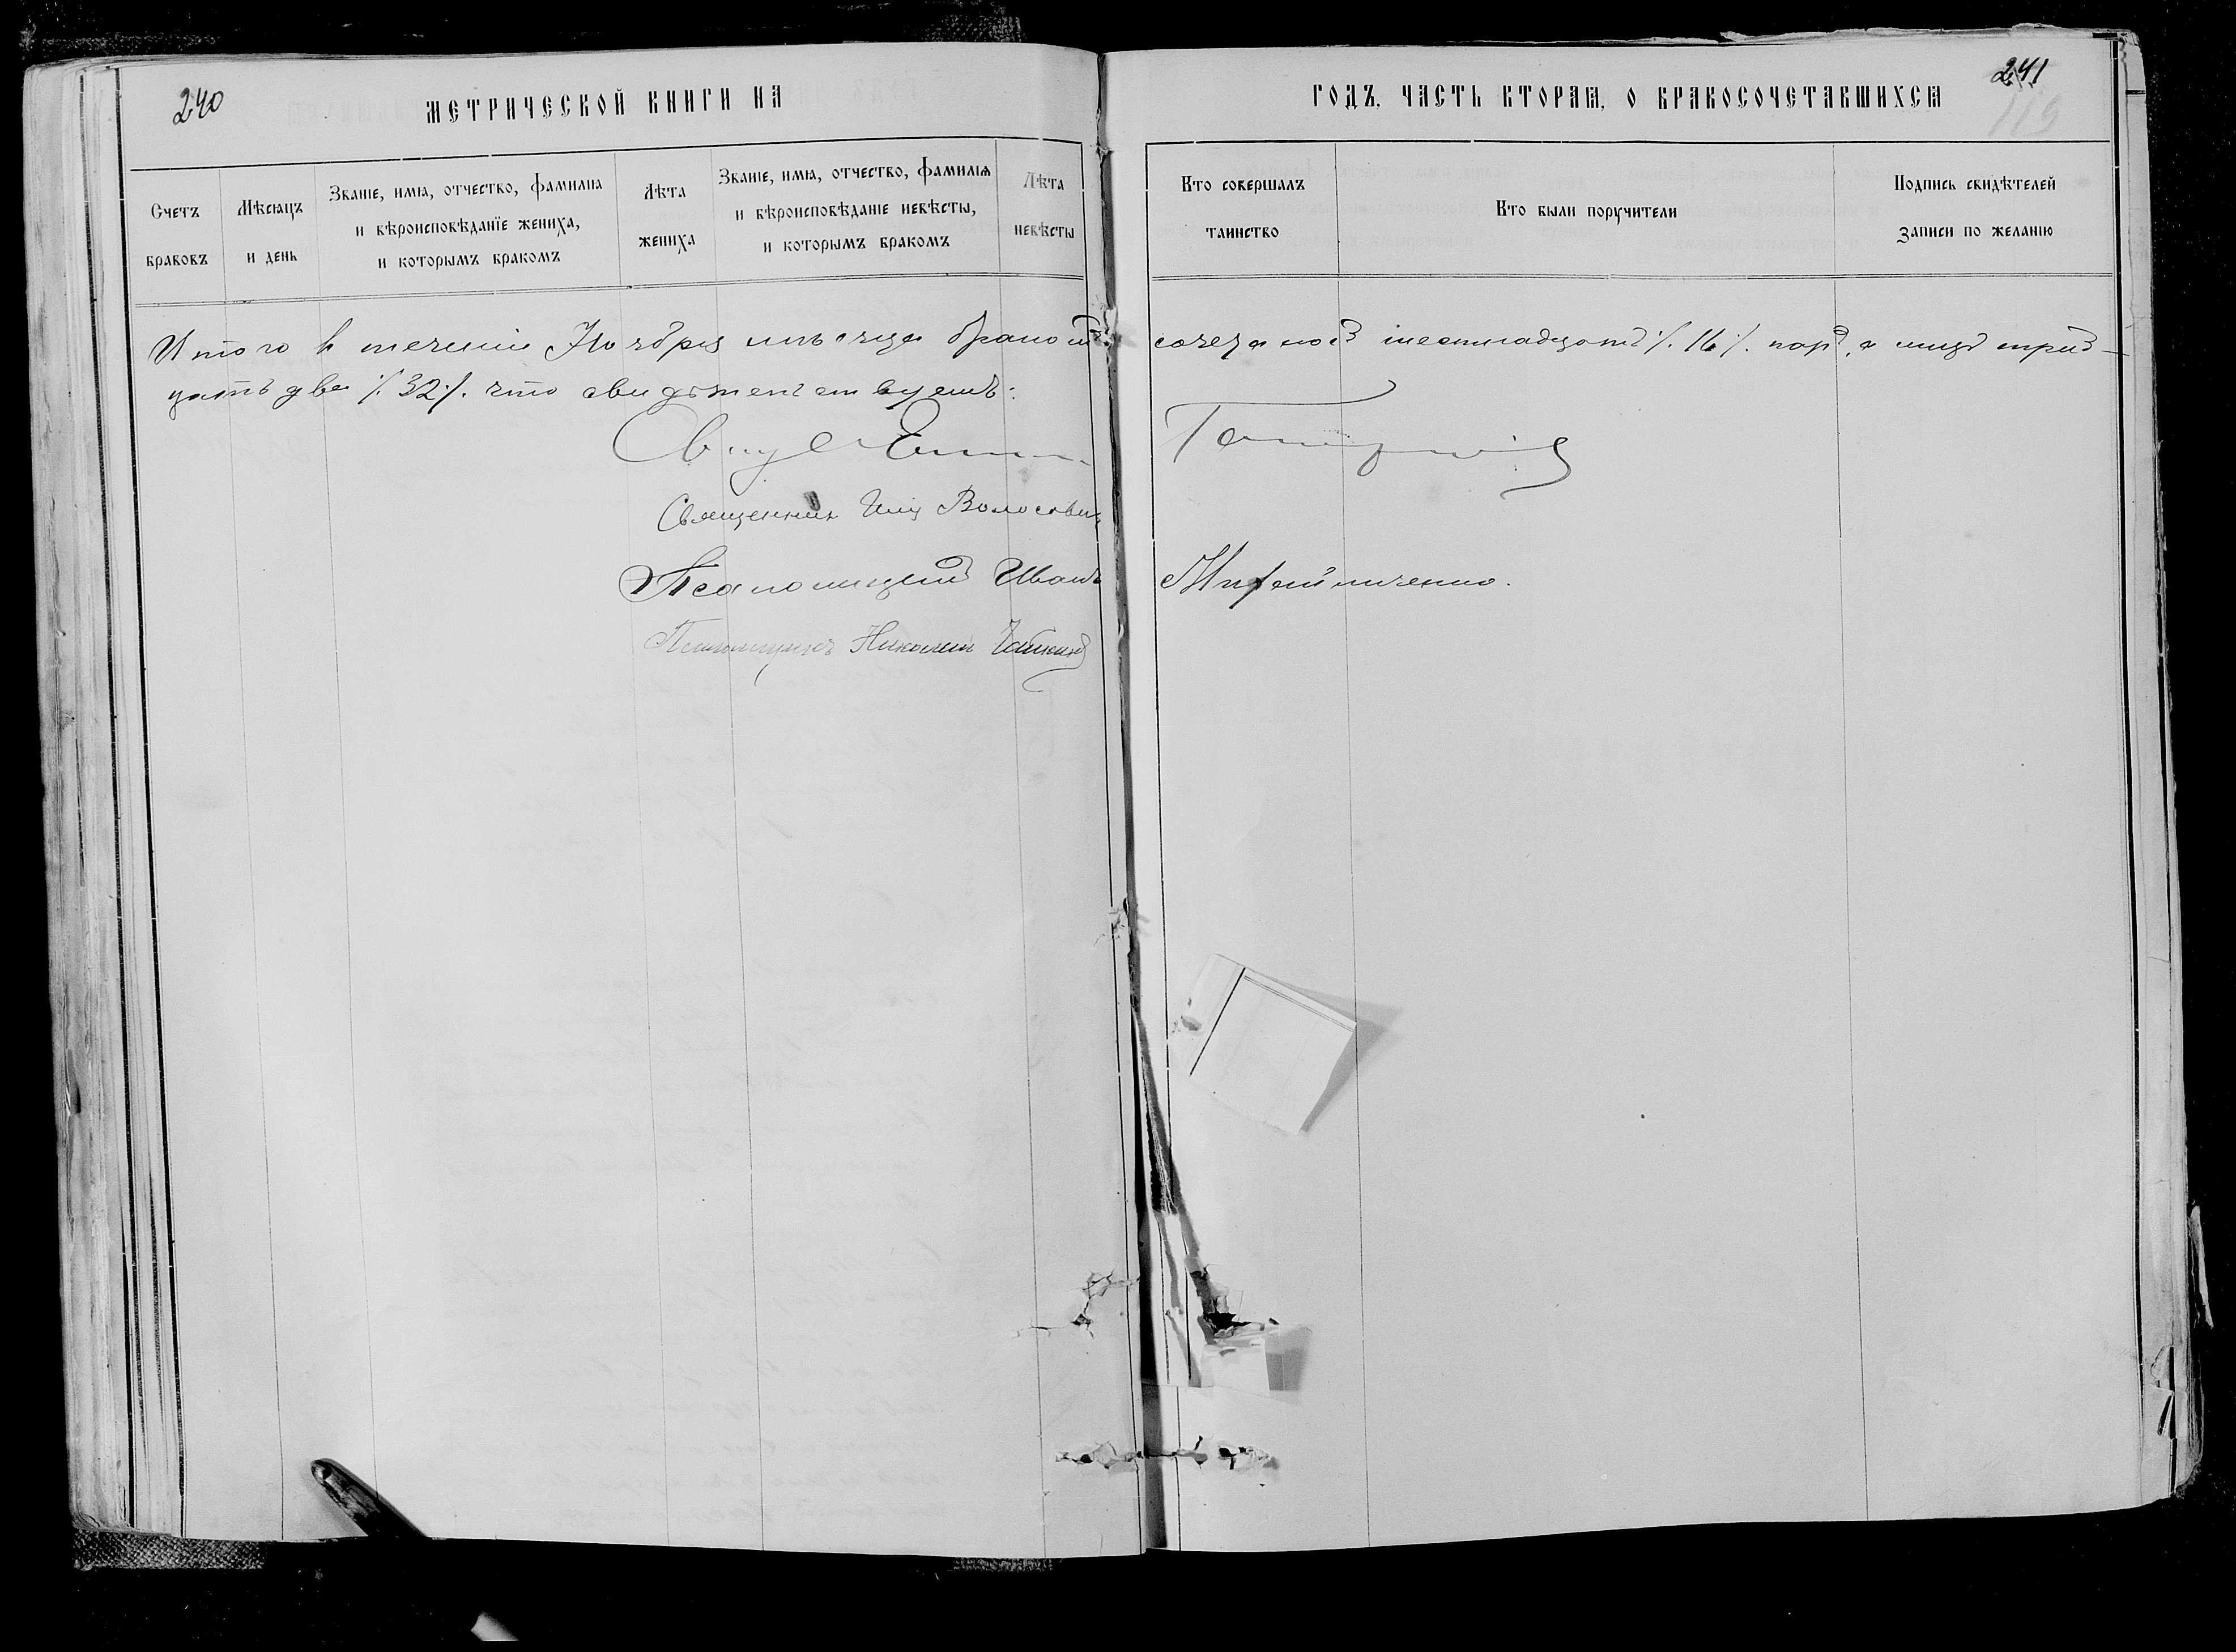 240
МЕТРИЧЕСКОЙ КНИГИ НА
ГОДЪ, ЧАСТЬ ВТОРАѦ, О БРАКОСОЧЕТАВШИХСѦ
241
119
Счетъ браковъ
Мѣсяцъ и день
Званіе, имя, отчество, фамилія и вѣроисповѣданїе жениха, и которымъ бракомъ
Лѣта жениха
Званіе, имя, отчество, фамилія и вѣроисповѣданіе невѣсты, и которымъ бракомъ
Лѣта невѣсты
Кто совершалъ таинство
Кто были поручители
Подпись свидѣтелей записи по желанію
Итого в теченіи Ноября мѣсяца бракомъ сочеталось шестнадцать ٪ 16 ٪ паръ, а лицъ трид-
цать два ٪ 32 ٪. что свидѣтельствуемъ:
Священникъ
Священник Волосевич
Псаломщикъ Иванъ
Псаломщикъ Николай